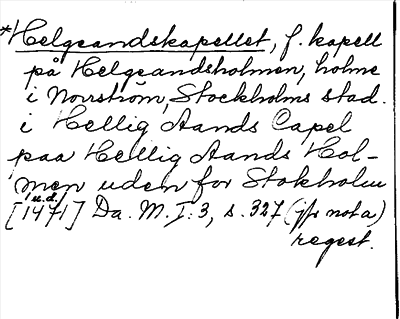 *Helgeandskapellet, f. kapell
på Helgeandsholmen, holme
i Norrström, Stockholms stad.
i Hellig Aands Capel
paa Hellig Aands Hol-
men uden for Stokholm
[u.d./1471] Da. M. I:3, s. 327 (jfr nota)
regest.